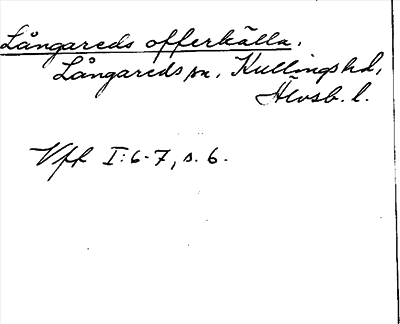 Långareds offerkälla.
Långareds sn, Kullings hd,
Älvsb. l.
Vff I:6-7, s. 6.